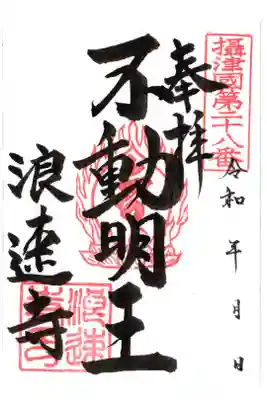 攝津國第二十八番
奉拝
令和 年 月 日
不動明王
浪速寺
浪速寺